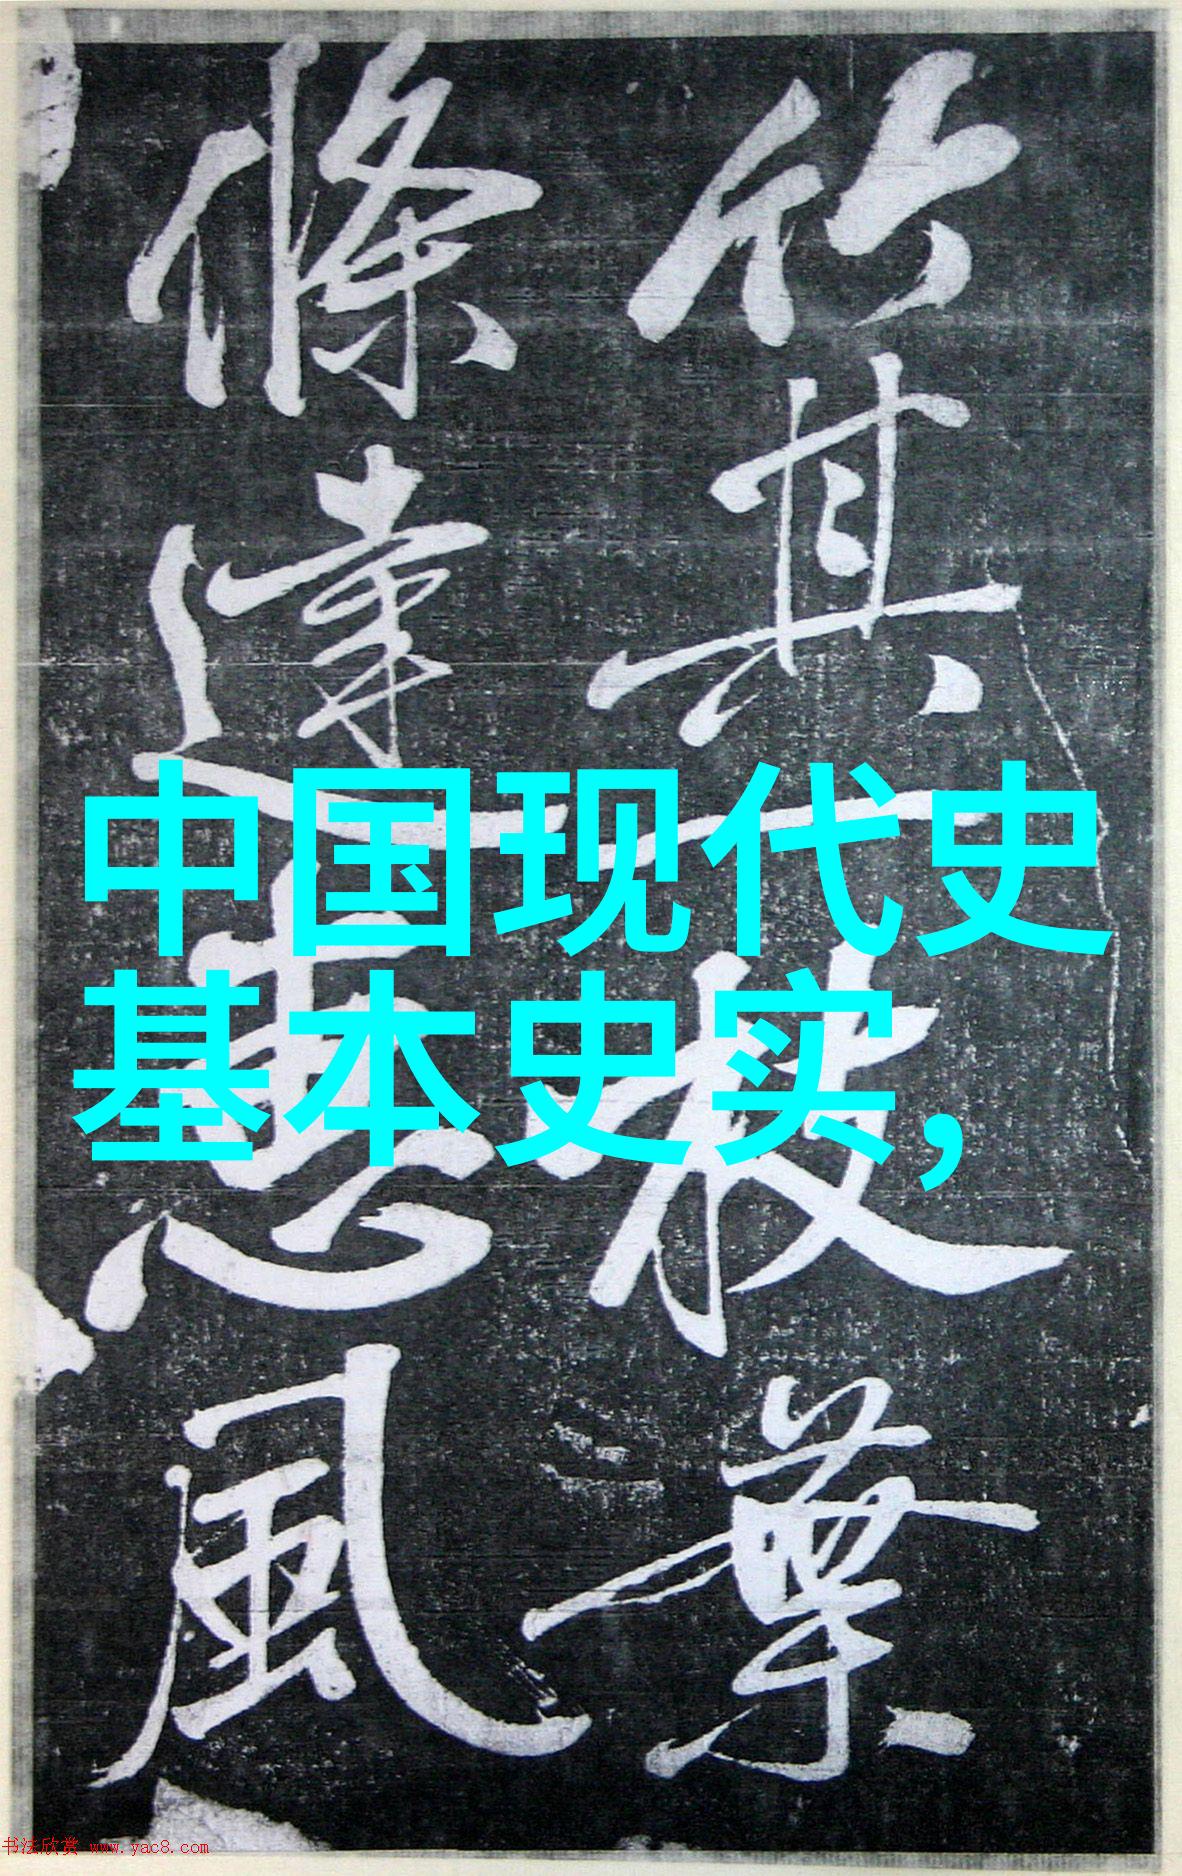 竹其一枝葉
條達惠風
中国现代史
基本史实,
书法欣赏 www.yac8.com